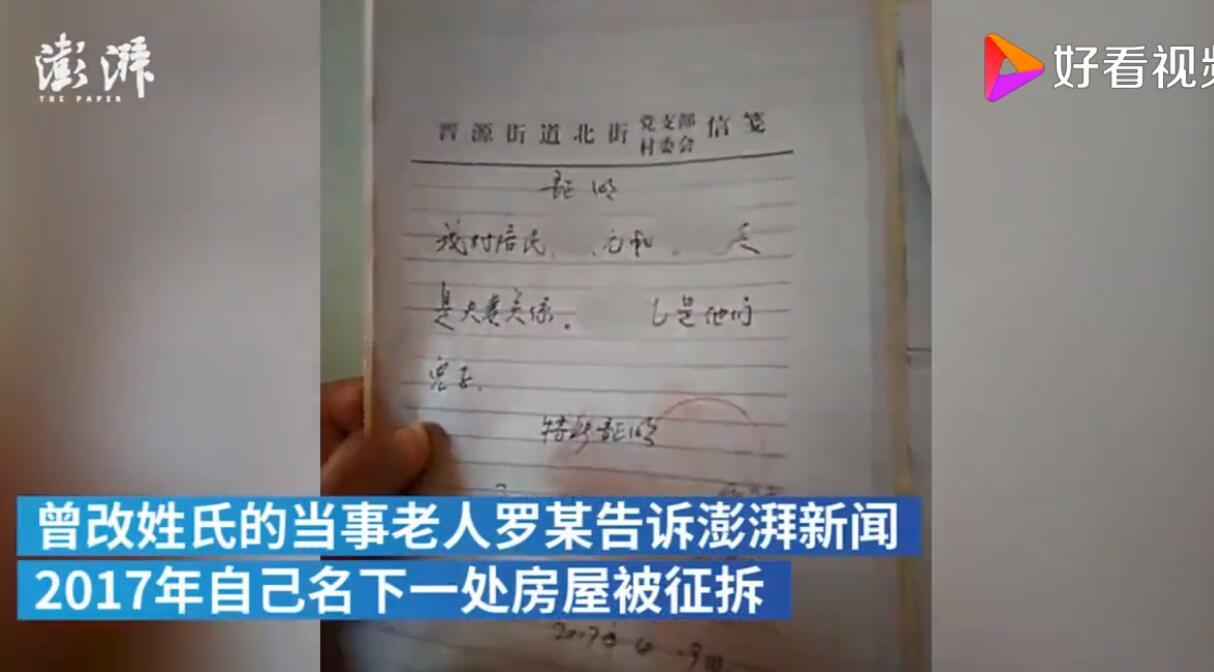 澎湃
THE PAPER
好看视频
晋源街道北街党支部村委会信笺
证明
我村居民
和
是夫妻关系。
是他们
儿子。
特此证明
曾改姓氏的当事老人罗某告诉澎湃新闻
2017年自己名下一处房屋被征拆